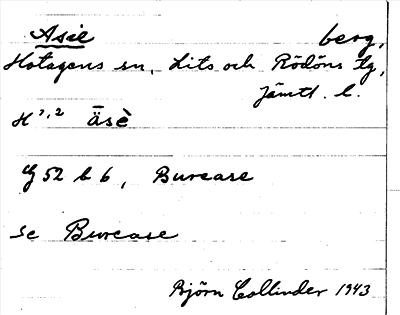 Asie berg,
Hotagens sn, Lits och Rödöns tg,
Jämtl. l.
H 7,2 āsè
G 52 b 6, Burease
se Burease
Björn Collinder 1943